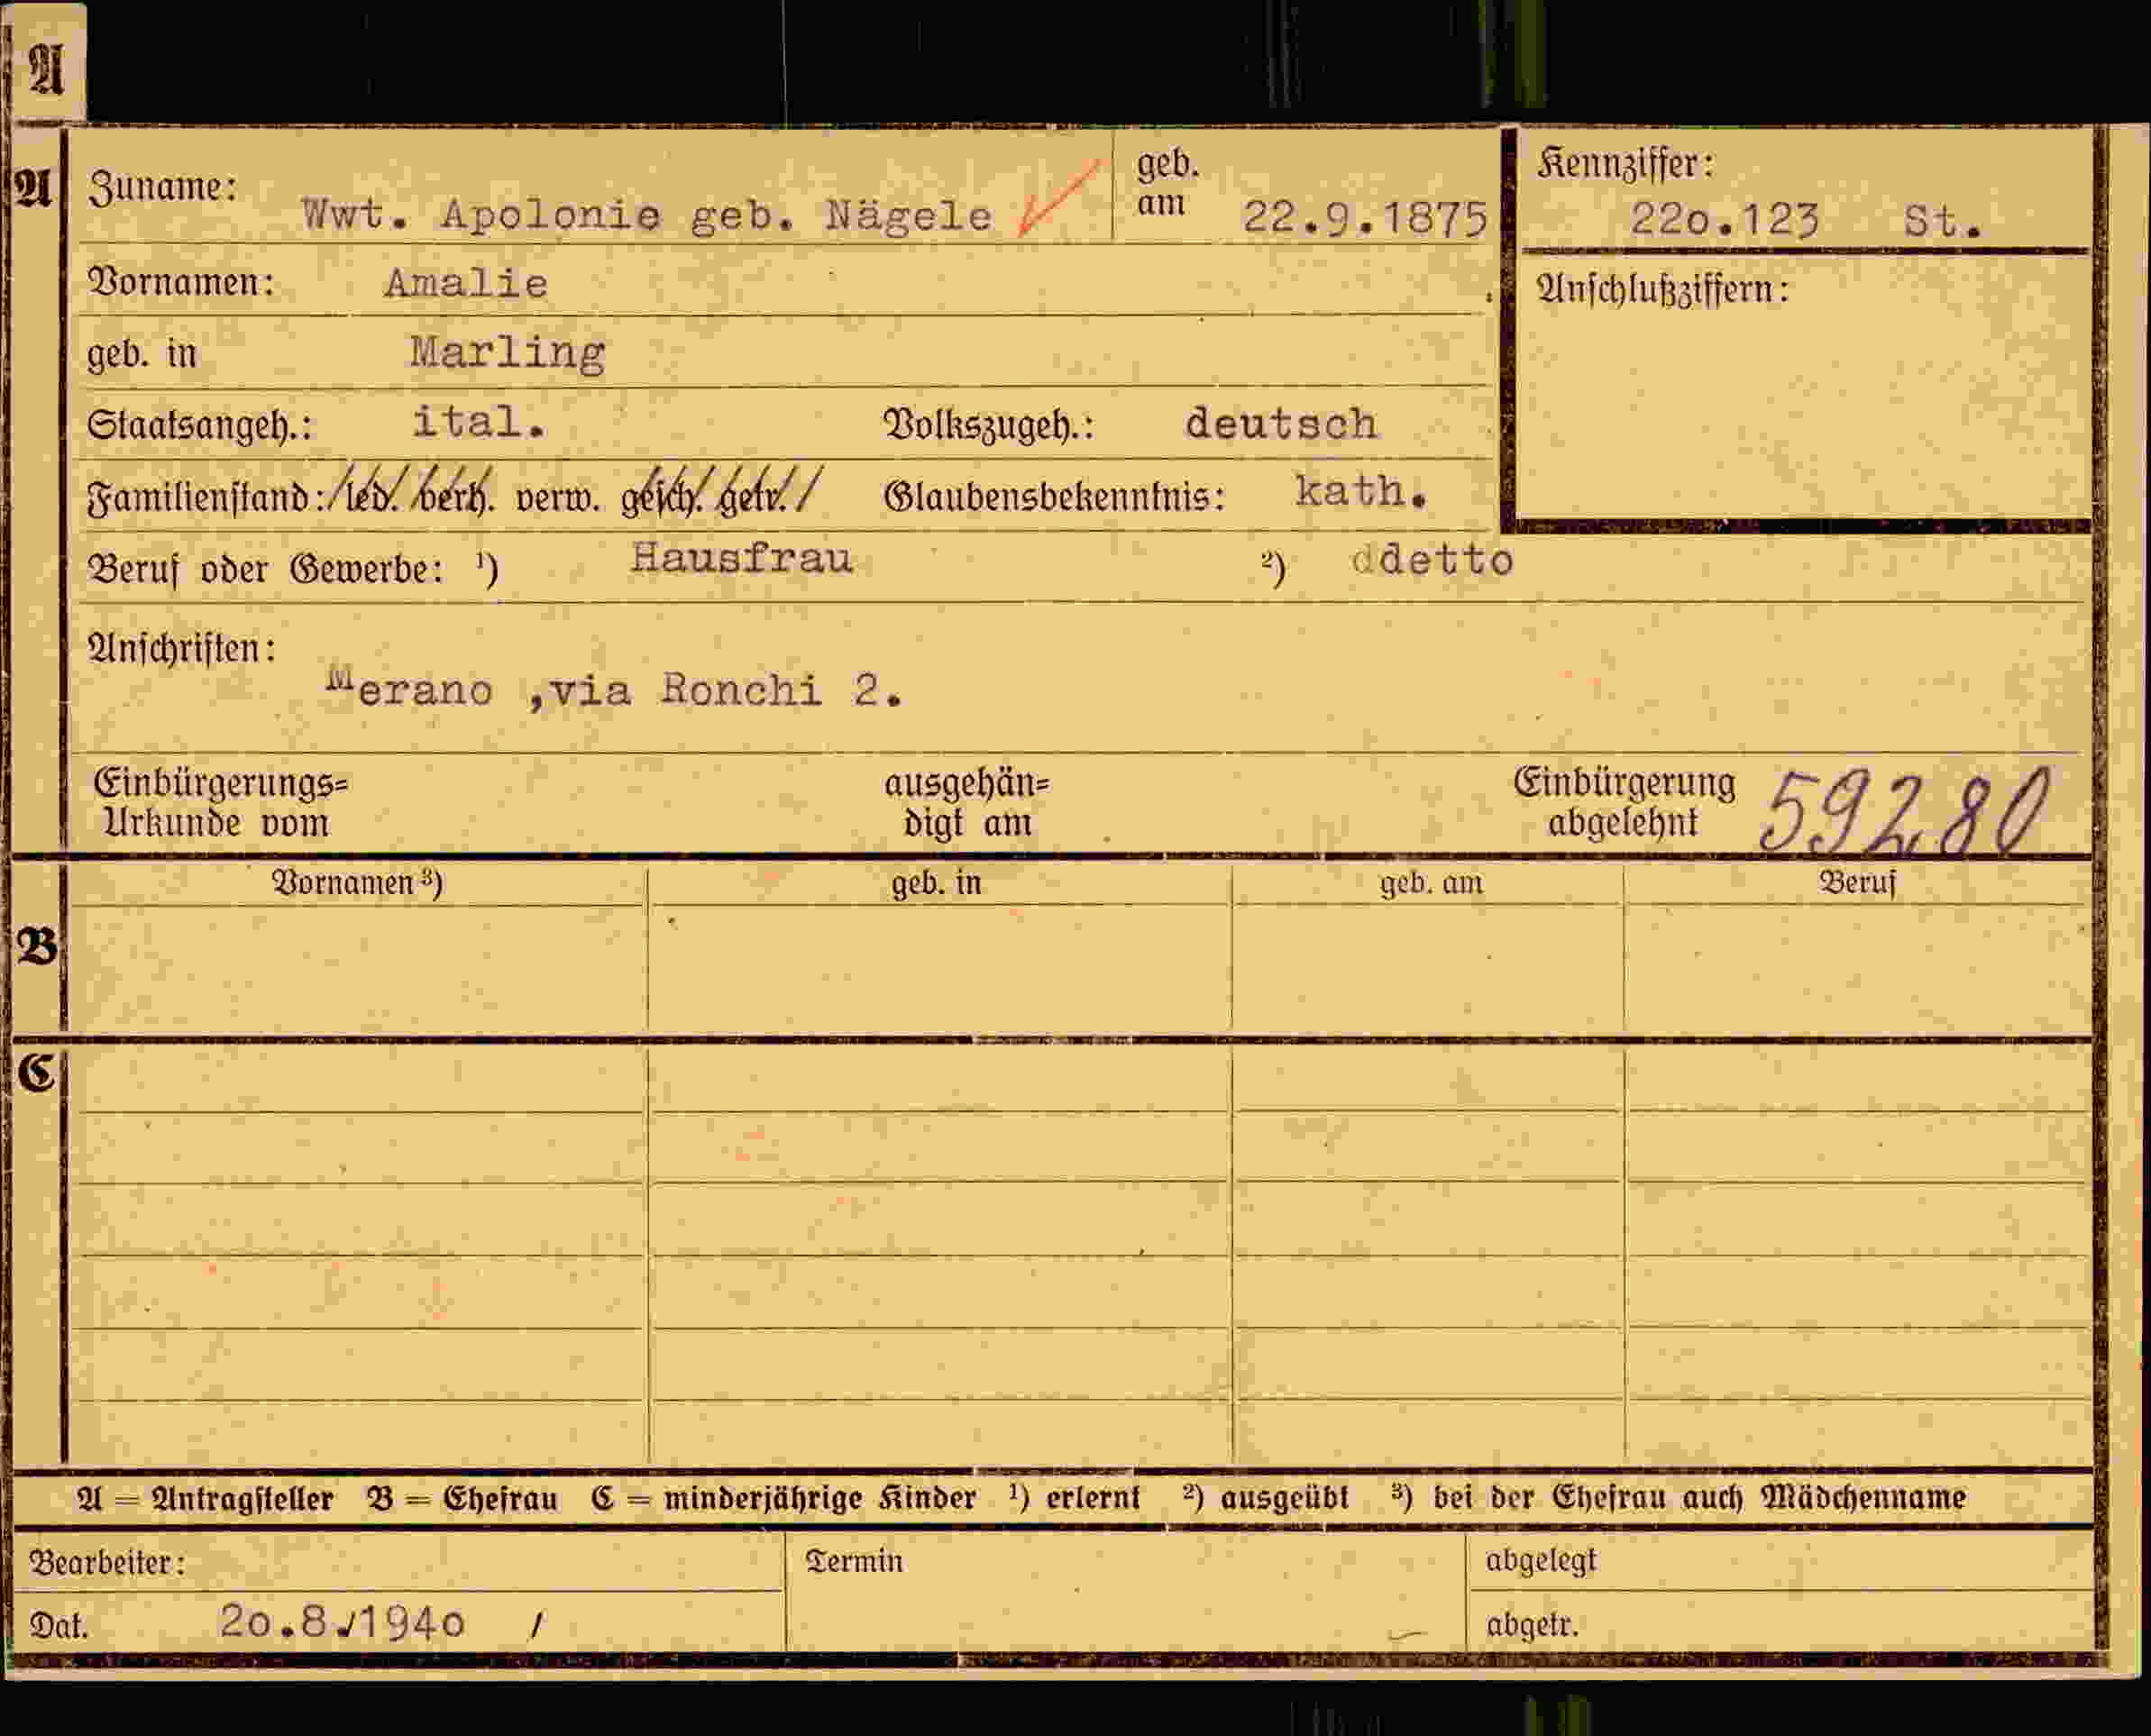 A
A Zuname: Wwt. Apolonie geb. Nägele geb. am 22.9.1875 Kennziffer: 22o.123 St.
Vornamen: Amalie Anschlußziffern:
geb. in Marling
Staatsangeh.: ital. Volkszugeh.: deutsch
Familienstand: led. verh. verw. gesch. getr. Glaubensbekenntnis: kath.
Beruf oder Gewerbe: ¹) Hausfrau ²) ddetto
Anschriften:
Merano ,via Ronchi 2.
Einbürgerungs= ausgehän= Einbürgerung 59280
Urkunde vom digt am abgelehnt
Vornamen ³) geb. in geb. am Beruf
B
C
A = Antragsteller B = Ehefrau C = minderjährige Kinder ¹) erlernt ²) ausgeübt ³) bei der Ehefrau auch Mädchenname
Bearbeiter: Termin abgelegt
Dat. 2o.8./194o / abgetr.